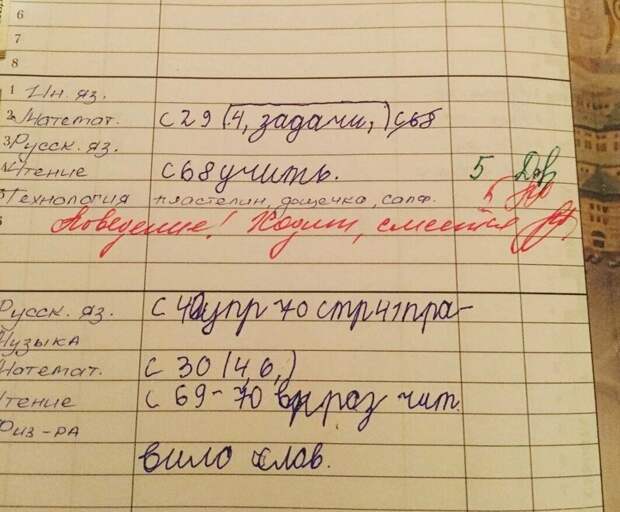 6
7
8
1 Ин. яз.
2 Математ. с 29 (4, задачи,) с 68
3 Русск. яз.
4 Чтение с 68 учить. 5
5 Технология пластелин, дощечка, салф. 5
6 Поведение! Ходит, смеётся
Русск. яз. с 40 упр 70 стр 41 пра-
Музыка
Математ. с 30 (4, 6,)
Чтение с 69-70 выраз чит.
Физ-ра
вило слов.